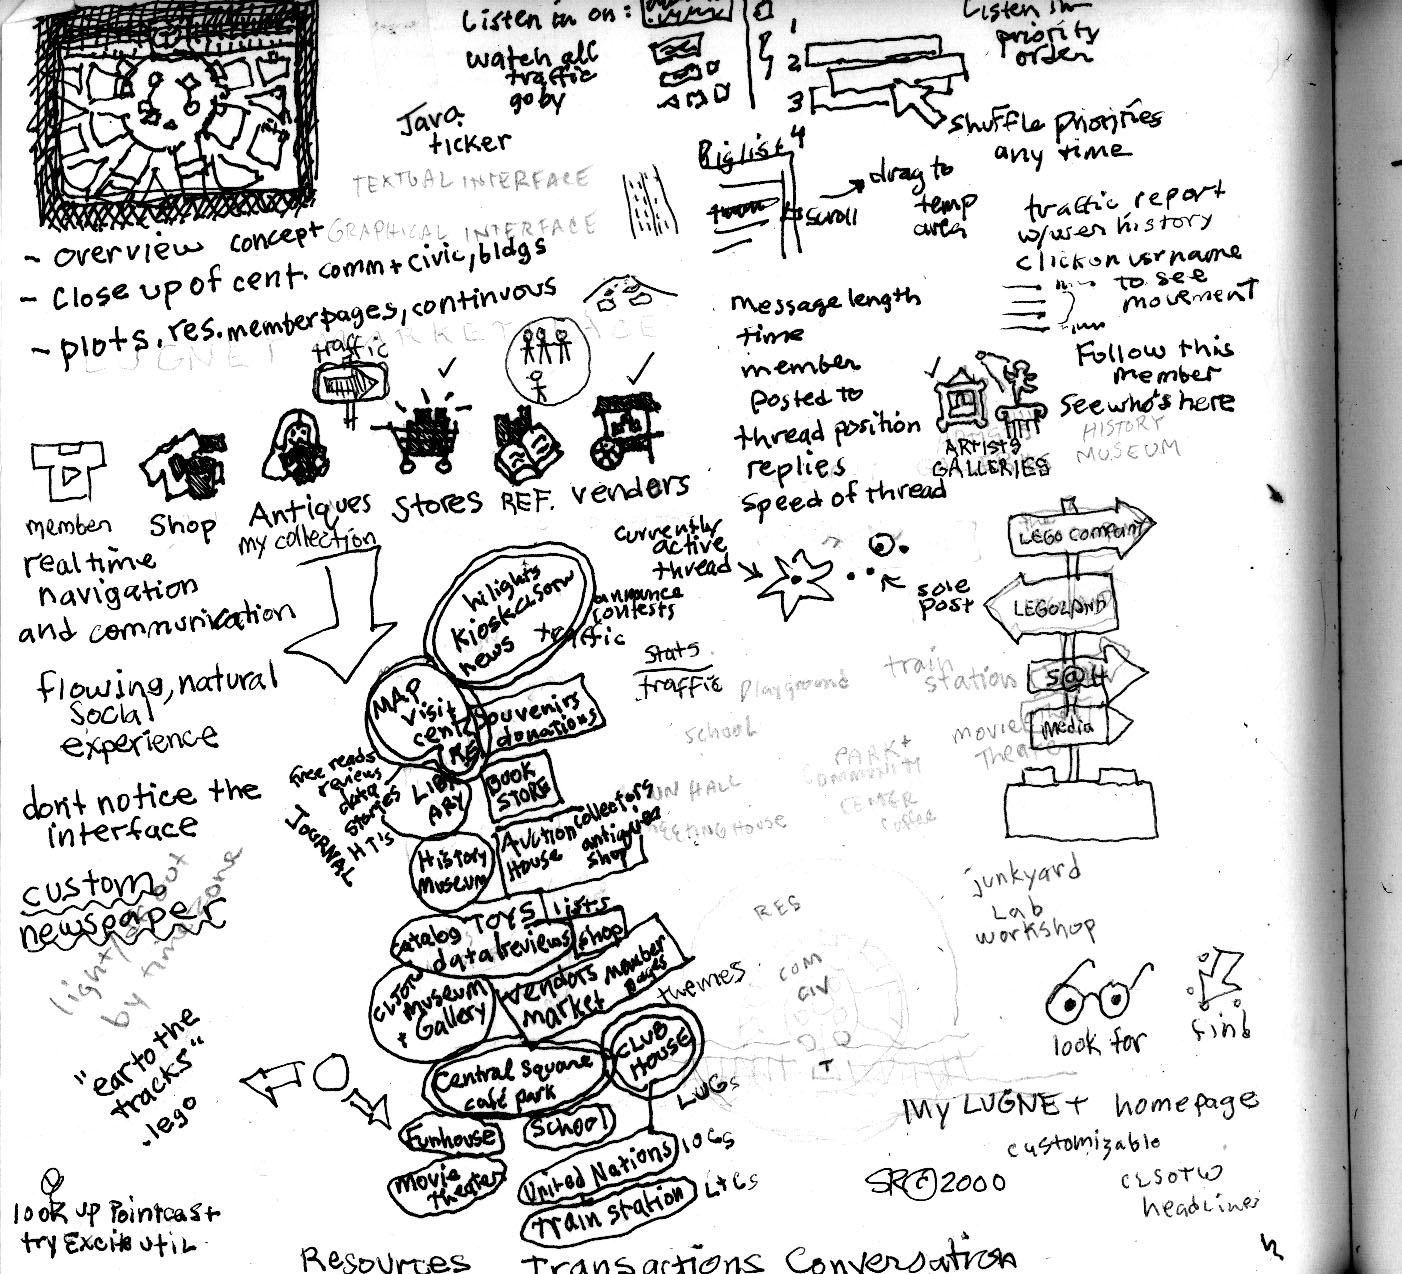 Listen in on:
watch all
traffic
go by
Java
ticker
1
2
3
4
Listen in
priority
order
shuffle priorities
any time
Big list
scroll
drag to
temp
area
TEXTUAL INTERFACE
GRAPHICAL INTERFACE
- overview concept
- close up of cent. comm + civic, bldgs
- plots, res. member pages, continuous
LUGNET MARKETPLACE
traffic
traffic report
w/user history
click on usrname
to see
movement
Follow this
member
see who's here
HISTORY
MUSEUM
message length
time
member
posted to
thread position
replies
speed of thread
ARTISTS
GALLERIES
member
Shop
Antiques
my collection
Stores
REF.
venders
real time
navigation
and communication
flowing, natural
social
experience
dont notice the
interface
custom
newspaper
light/dark out
by timezone
"ear to the
tracks"
.lego
look up Pointcast
try Excite util
currently
active
thread
sole
post
LEGO COMPANY
LEGOLAND
S@H
Media
hilights
kiosk CLSOTW
news
traffic
announce
contests
stats
traffic
MAP
visit
cent
REF
Souvenirs
donations
free reads
reviews
data
stories
HT's
JOURNAL
LIBR
ARY
BOOK
STORE
History
Museum
Auction
House
collectors
antiques
shop
catalog
TOYS
data
lists
reviews
shop
custom
museum
+ Gallery
Vendors
market
member
pages
themes
Central Square
café park
CLUB
HOUSE
LUGs
Funhouse
School
Movie
theater
United Nations
LOCs
train station
LTCs
playground
school
train
station
movie
Theater
PARK +
COMMUNITY
CENTER
coffee
TOWN HALL
MEETING HOUSE
RES
COM
CIV
T
junkyard
Lab
workshop
look for
find
My LUGNET homepage
customizable
CLSOTW
headlines
SR©2000
Resources Transactions Conversation